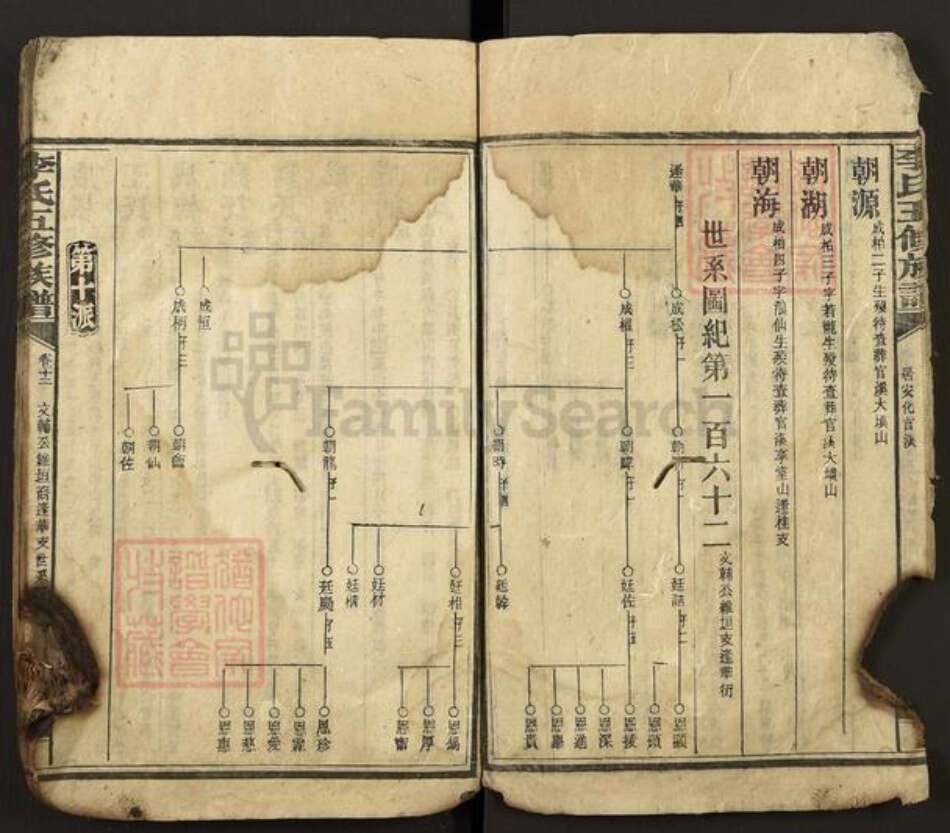 李氏五修族譜
居安化官溪
朝源
成柏二子生歿待查葬官溪大塡山
朝湖
成柏三子字若龍生歿待查葬官溪大塡山
朝海
成柏四子字
仙生歿待查葬官溪享堂山逢桂支
世系圖紀第一百六十二
文輔公維垣支逢華衍
逢華
成松
成權
廷諮
朝暐
廷佐
朝時
廷幹
恩顯
恩碩
恩拔
恩深
恩進
恩畢
恩貫
成恒
成柄
朝龍
朝會
朝仙
朝佐
廷相
廷材
廷構
廷颺
恩錫
恩厚
恩霈
恩珍
恩霖
恩愛
恩慈
恩惠
李氏五修族譜
卷十三
文輔公維垣裔逢華支世系
FamilySearch